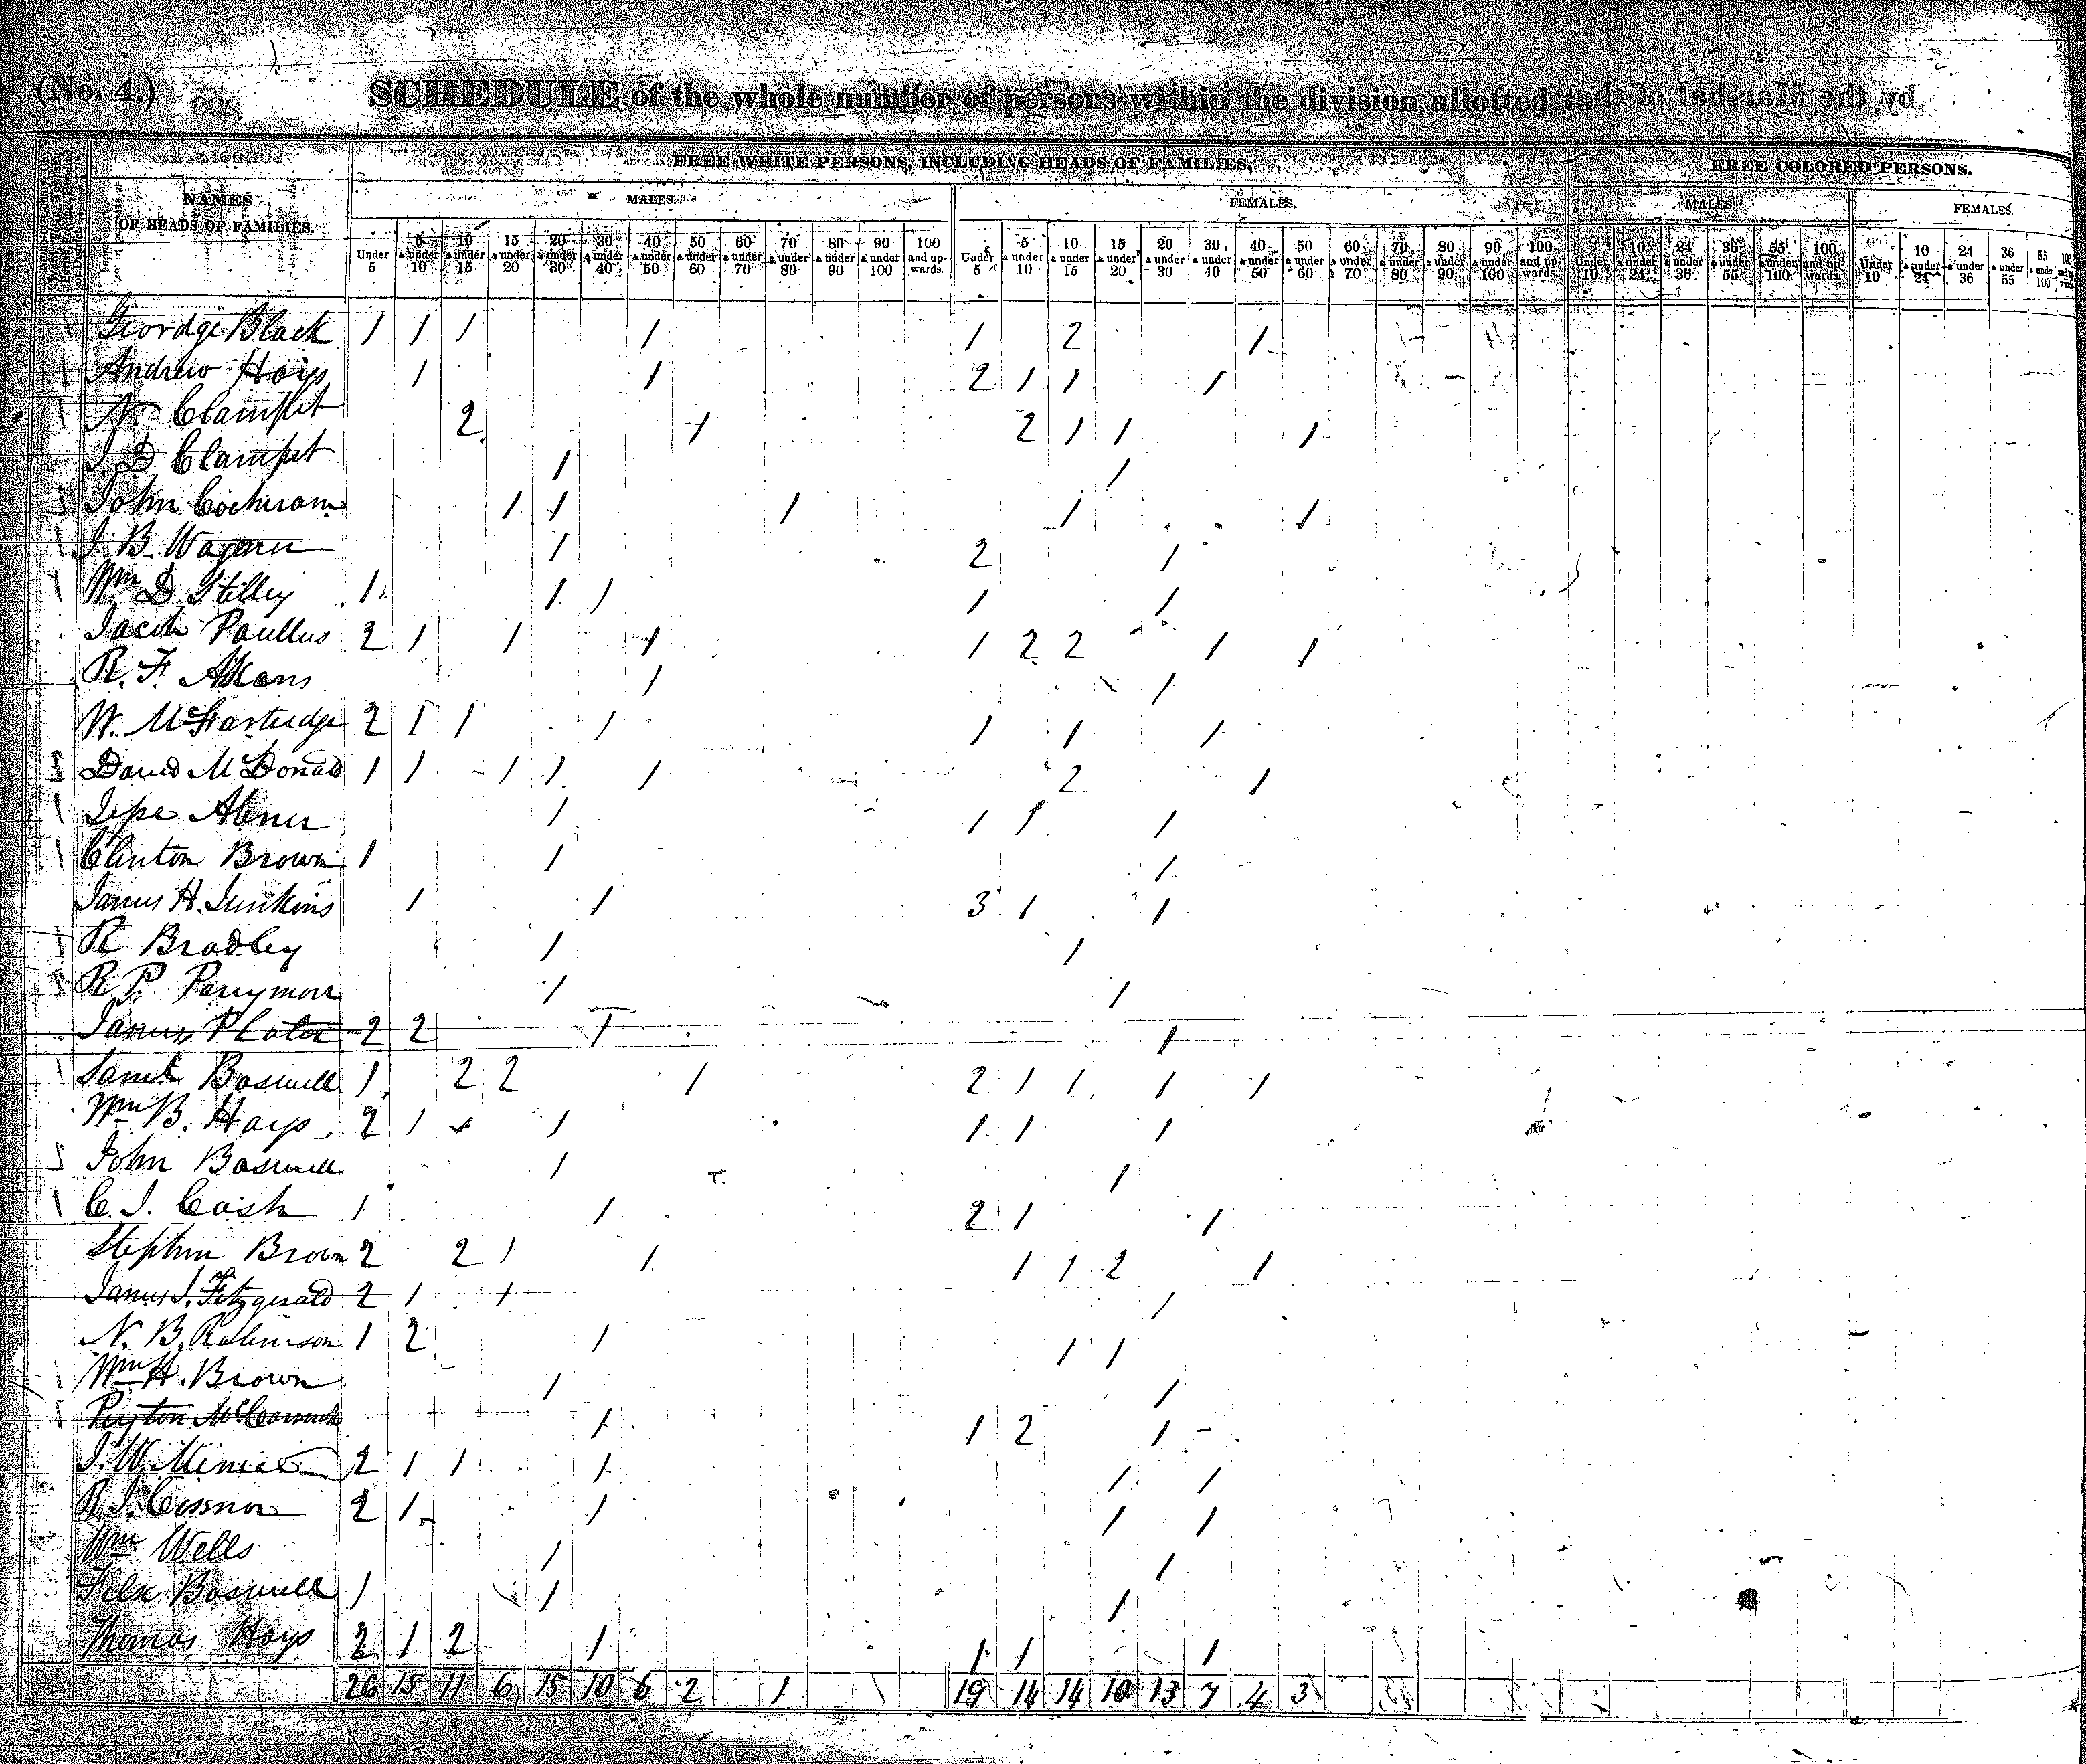 (No. 4.) SCHEDULE of the whole number of persons within the division allotted to by the Marshal of the
FREE WHITE PERSONS, INCLUDING HEADS OF FAMILIES. FREE COLORED PERSONS.
NAMES OF HEADS OF FAMILIES. MALES. FEMALES. MALES. FEMALES.
Under 5 5 & under 10 10 & under 15 15 & under 20 20 & under 30 30 & under 40 40 & under 50 50 & under 60 60 & under 70 70 & under 80 80 & under 90 90 & under 100 100 and upwards. Under 5 5 & under 10 10 & under 15 15 & under 20 20 & under 30 30 & under 40 40 & under 50 50 & under 60 60 & under 70 70 & under 80 80 & under 90 90 & under 100 100 and upwards. Under 10 10 & under 24 24 & under 36 36 & under 55 55 & under 100 100 and upwards. Under 10 10 & under 24 24 & under 36 36 & under 55 55 & under 100
Geordge Black 1 1 1 1 1 2 1
Andrew Hays 1 1 2 1 1 1
N Clampit 2 1 2 1 1 1
J. D Clampit 1 1
John Cochram 1 1 1 1 1
J. B. Wagoner 1 2 1
Wm D. Stilley 1 1 1 1 1
Jacob Paullus 2 1 1 1 1 2 2 1 1
R. F. Akans 1 1
W. 2 1 1 1 1 1 1
David McDonald 1 1 1 1 1 2 1
Jesse Abner 1 1 1 1
Clinton Brown 1 1 1
James H. Junkins 1 1 3 1 1
R Bradley 1 1
R. P. Parrymore 1 1
James P 2 2 1 1
Saml Boswell 1 2 2 1 2 1 1 1 1
Wm B. Hays 2 1 1 1 1 1
John Boswell 1 1
C. J. Cash 1 1 2 1 1
Stephen Brown 2 2 1 1 1 1 2 1
James J. Fitzgerald 2 1 1 1
N. B. Robinson 1 2 1 1 1
Wm H. Brown 1 1
Peyton McCormick 1 1 2 1
J. W. 2 1 1 1 1 1
R. J. 2 1 1 1 1
Wm Wells 1 1
Filx Boswell 1 1 1
Thomas Hays 2 1 2 1 1 1 1
26 15 11 6 15 10 6 2 1 19 14 14 10 13 7 4 3